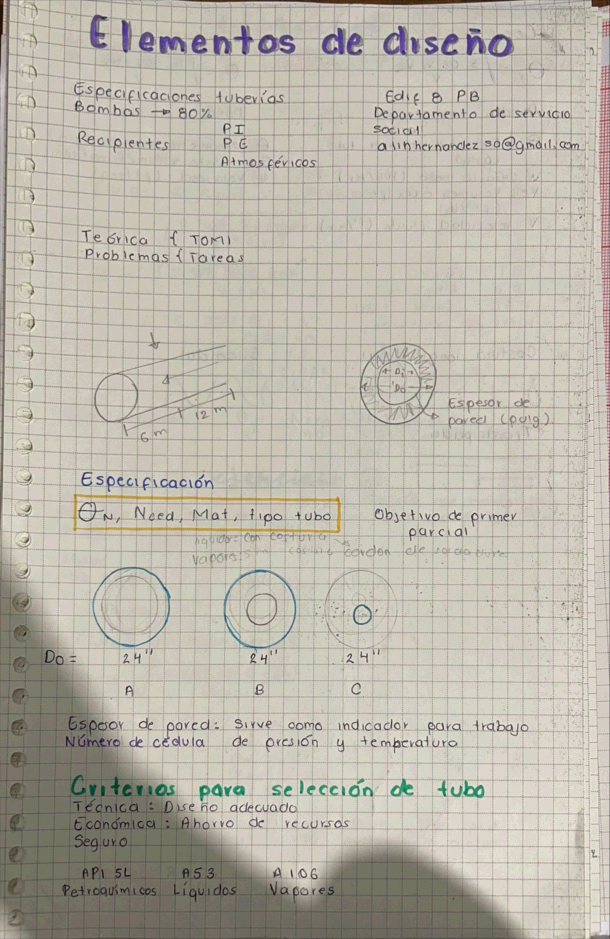 Elementos de diseño
Especificaciones tuberías
Bombas → 80%
Recipientes
PI
PE
Atmosféricos
Edif 8 PB
Departamento de servicio
social
alinhernandez30@gmail.com
Teórica { TOM1
Problemas { Tareas
6 m
12 m
Di
Do
Espesor de
pared (pulg)
Especificación
ΘN, Nced, Mat, tipo tubo
Objetivo de primer
parcial
liquidos: con costura
vapores:
cordon de soldadura
Do = 24" 24" 24"
A B C
Espesor de pared: Sirve como indicador para trabajo
Número de cédula de presión y temperatura
Criterios para selección de tubo
Técnica: Diseño adecuado
Económica: Ahorro de recursos
Seguro
API 5L A53 A106
Petroquímicos Líquidos Vapores